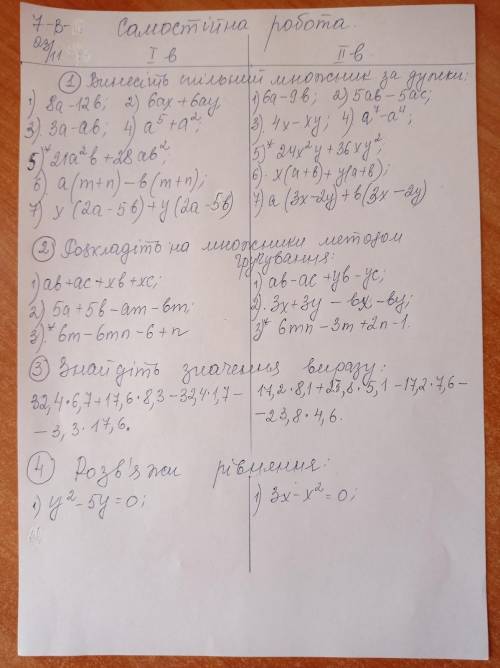 7-В- Самостійна робота.
03/11
I в II в.
① Винесіть спільний множник за дужки:
1) 8a-12b; 2) 6ax+6ay 1) 6a-9b; 2) 5ab-5ac;
3). 3a-ab; 4) a⁵+a²; 3). 4x-xy; 4) a⁷-a⁴;
5)* 21a²b+28ab²; 5)* 24x²y+36xy²;
6) a(m+n)-b(m+n); 6). x(a+b)+y(a+b);
7) x(2a-5b)+y(2a-5b) 7) a(3x-2y)+b(3x-2y)
② Розкладіть на множники методом
групування:
1) ab+ac+xb+xc; 1) ab-ac+yb-yc;
2) 5a+5b-am-bm; 2). 3x+3y-bx-by;
3).* 6m-6mn-6+n 3)* 6mn-3m+2n-1.
③ Знайдіть значення виразу:
32,4·6,7+17,6·8,3-32,4·1,7- 17,2·8,1+23,8·5,1-17,2·7,6-
-3,3·17,6. -23,8·4,6.
④ Розв'яжи рівняння:
1) y²-5y=0; 1) 3x-x²=0;